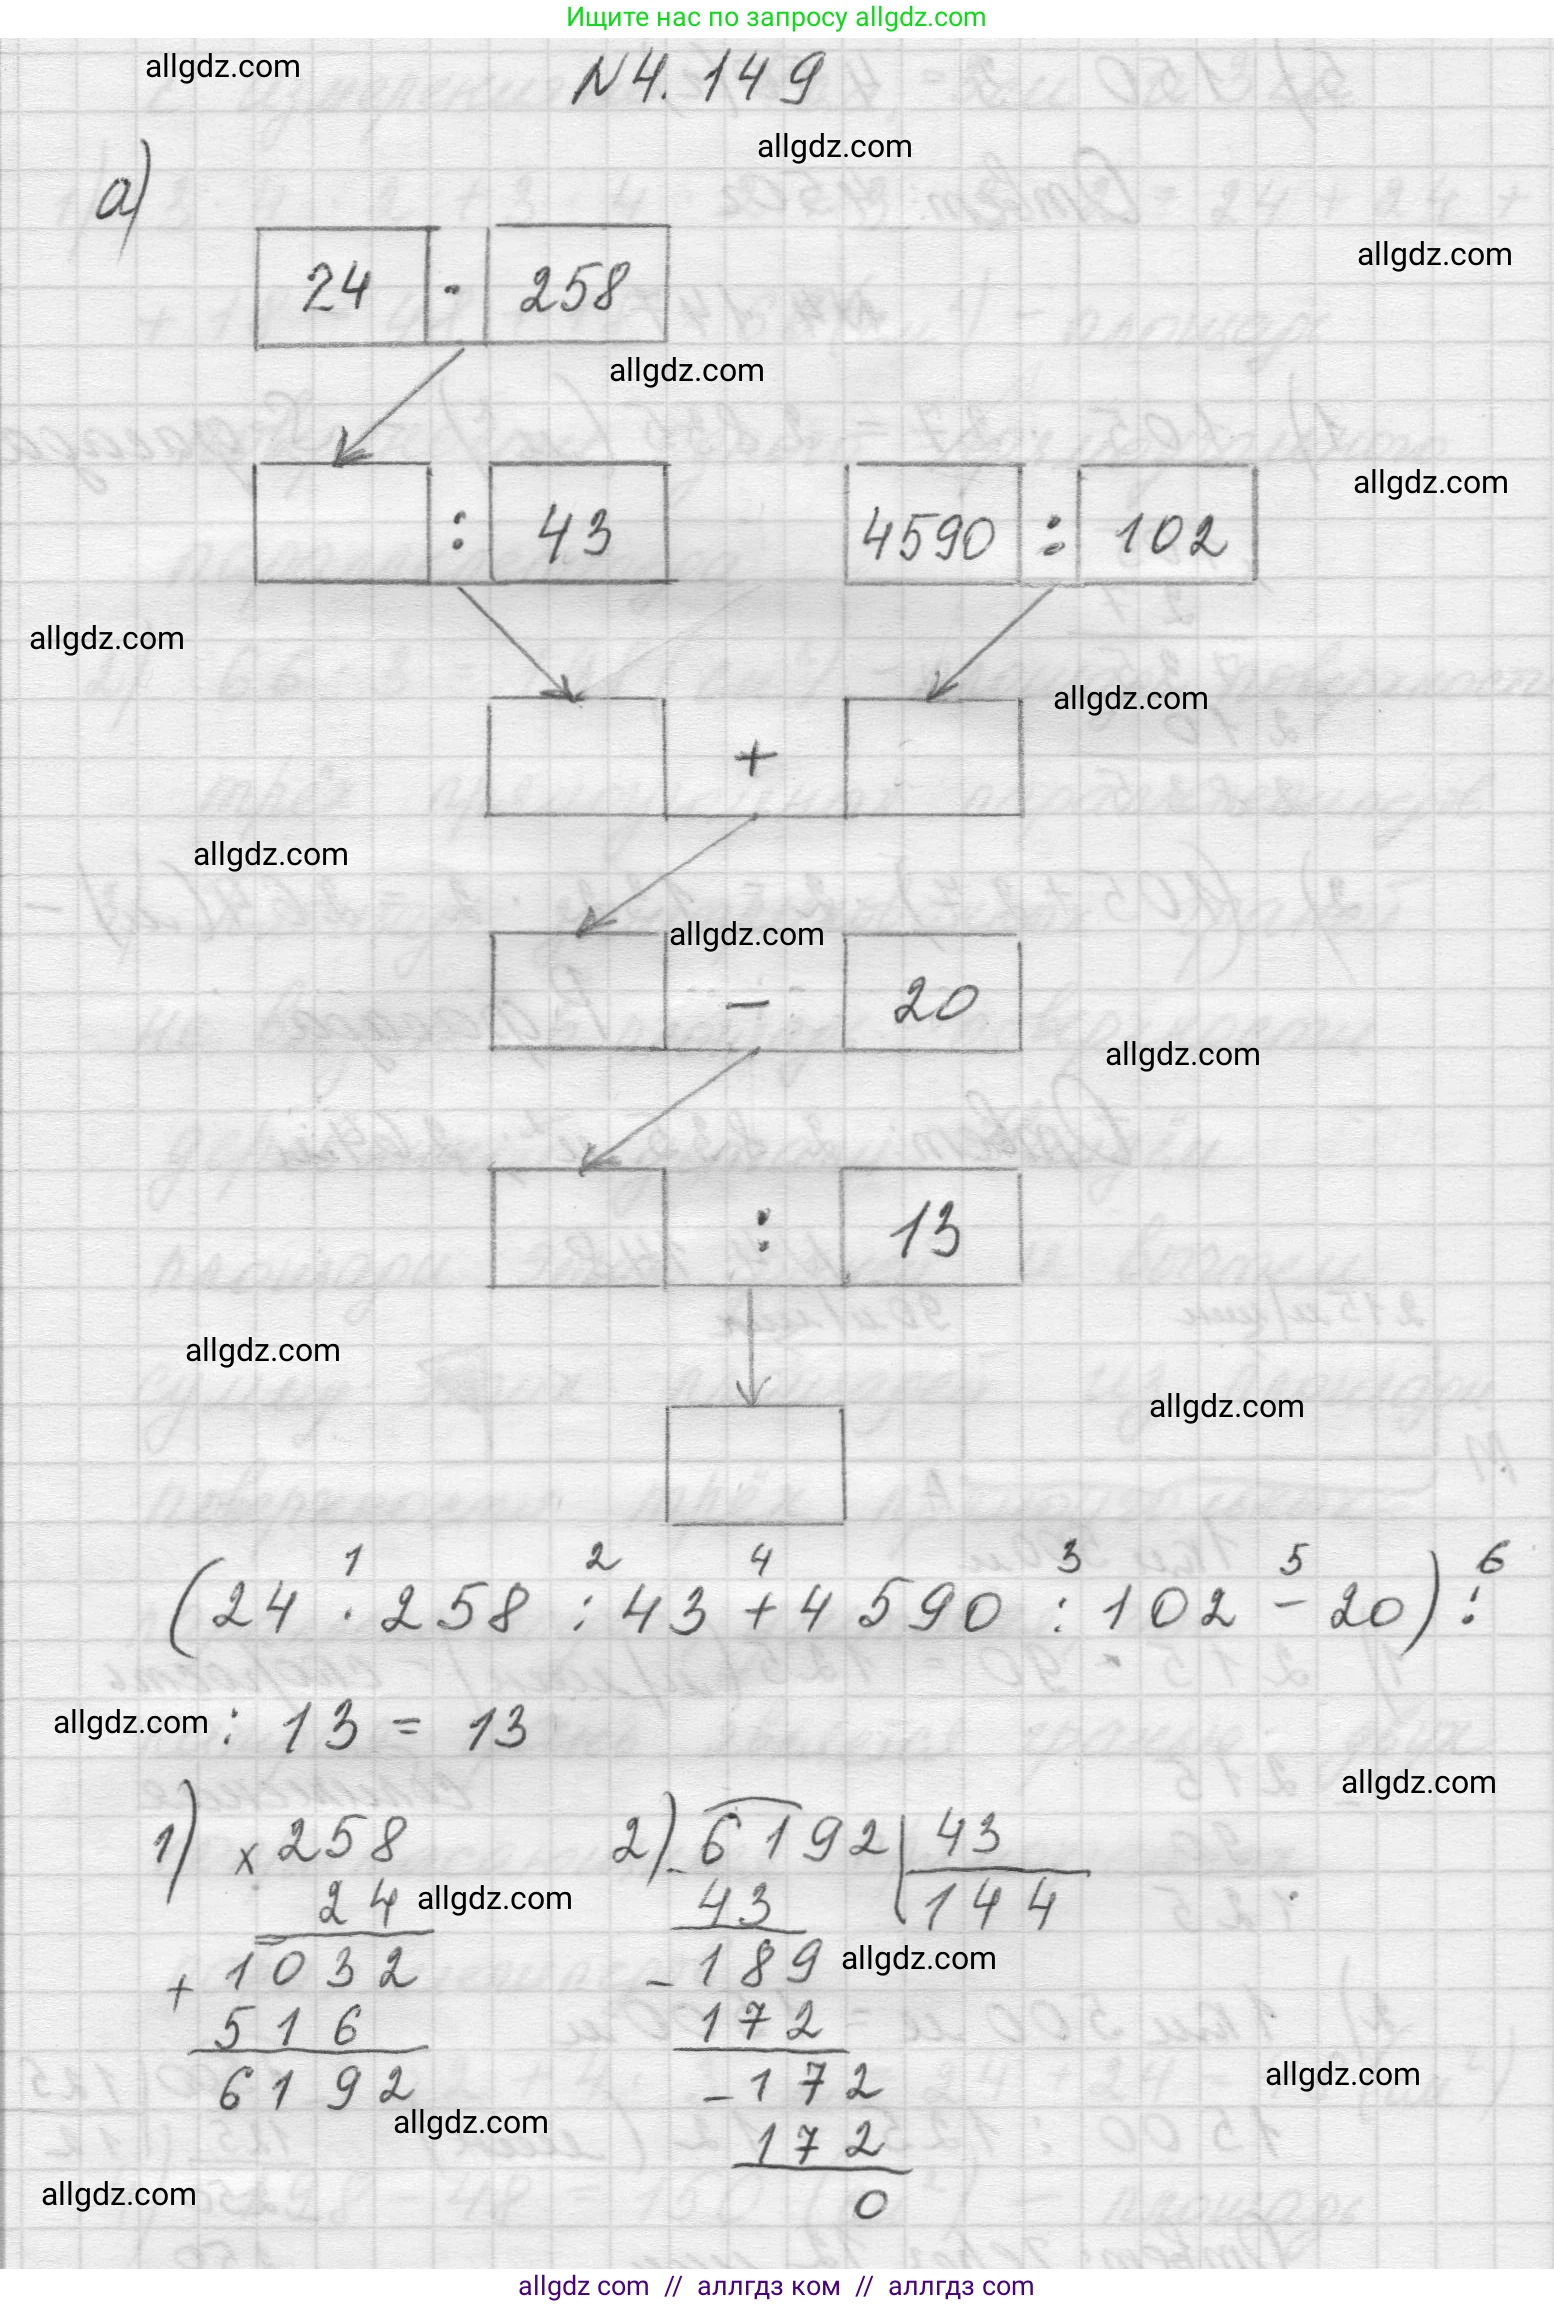 Ищите нас по запросу allgdz.com
allgdz.com
N4.149
allgdz.com
а)
allgdz.com
24 · 258
allgdz.com
allgdz.com
: 43
4590 : 102
allgdz.com
allgdz.com
+
allgdz.com
allgdz.com
− 20
allgdz.com
: 13
allgdz.com
allgdz.com
1 2 4 3 5 6
(24 · 258 : 43 + 4590 : 102 − 20) :
allgdz.com
: 13 = 13
allgdz.com
1) × 258
24
allgdz.com
+ 1032
516
6192
2) − 6192 | 43
43 144
allgdz.com
− 189
172
− 172
172
0
allgdz.com
allgdz.com
allgdz.com
allgdz com // аллгдз ком // аллгдз com